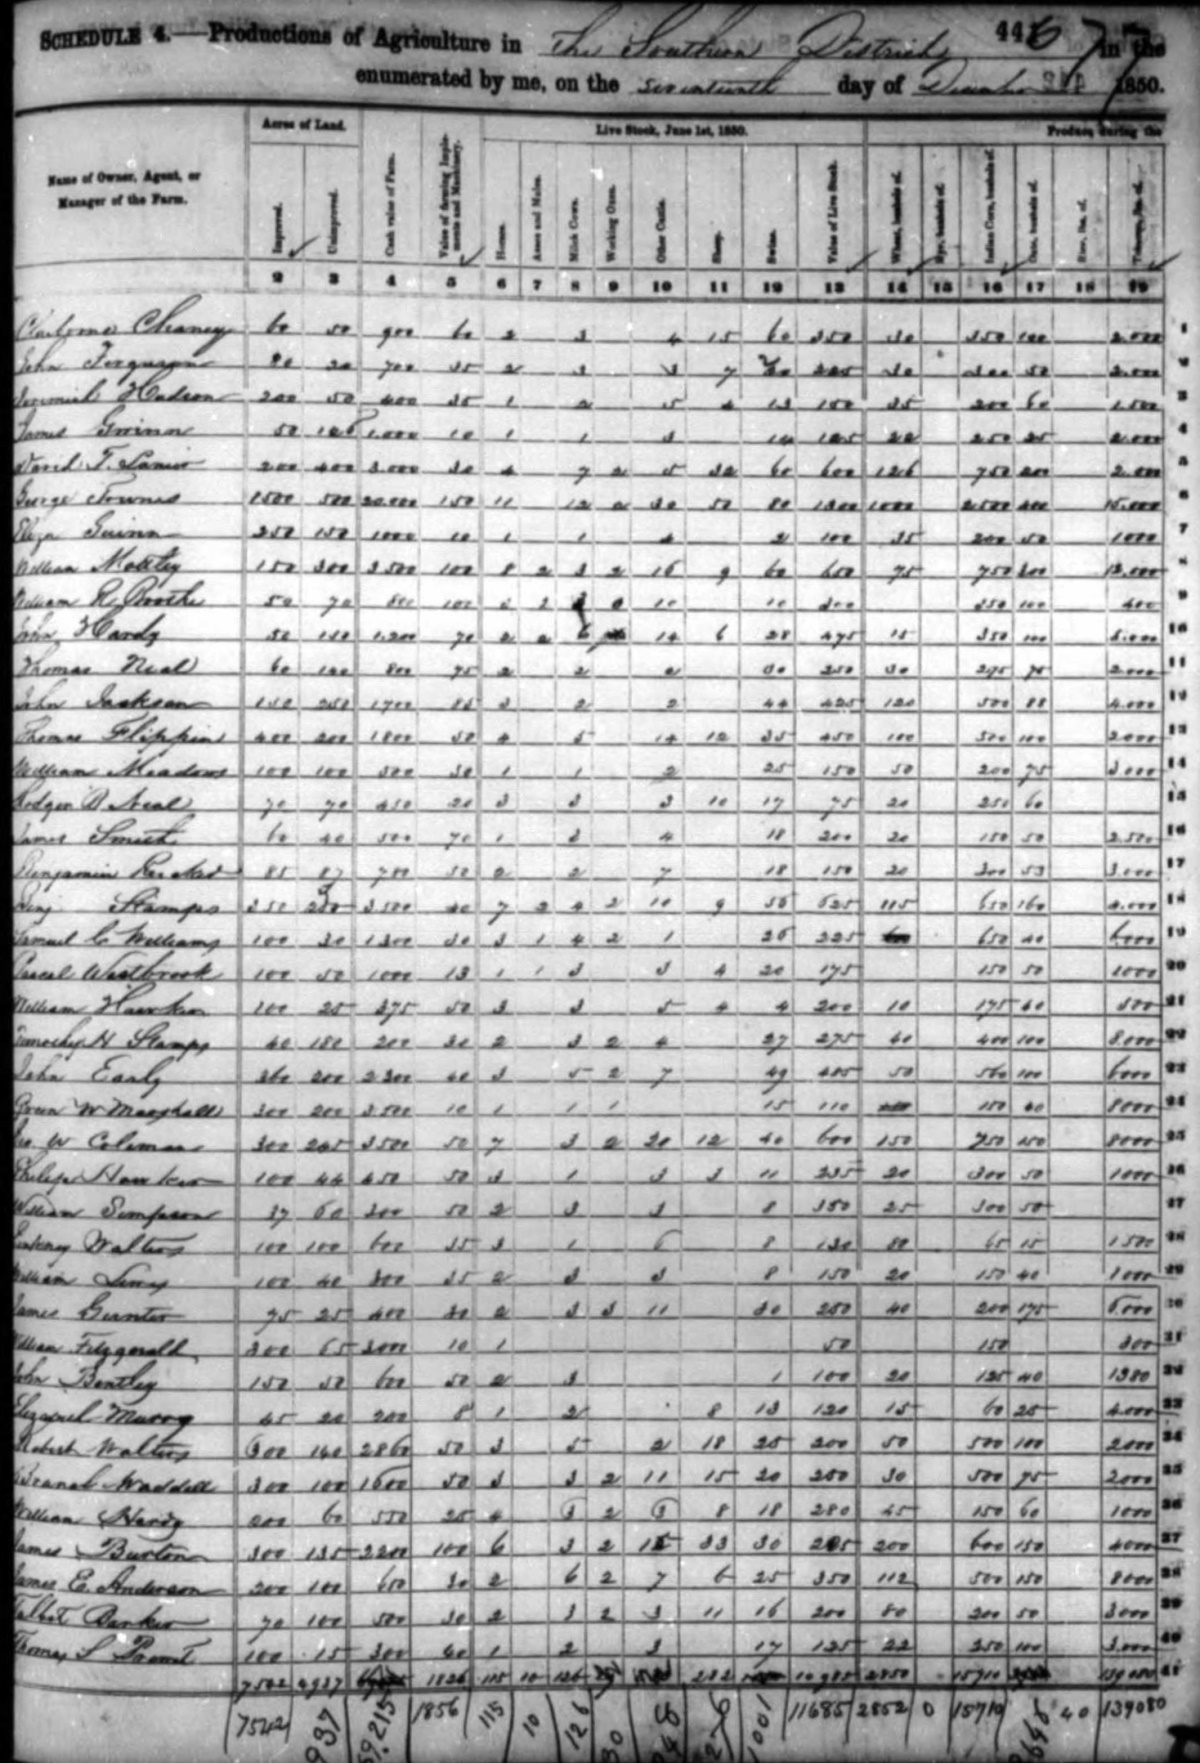 SCHEDULE 4.—Productions of Agriculture in The Southern District in the
enumerated by me, on the seventeenth day of December 1850.
Acres of Land. Live Stock, June 1st, 1850. Produce during the
Name of Owner, Agent, or Manager of the Farm. Improved. Unimproved. Cash value of Farm. Value of farming Implements and Machinery. Horses. Asses and Mules. Milch Cows. Working Oxen. Other Cattle. Sheep. Swine. Value of Live Stock. Wheat, bushels of. Rye, bushels of. Indian Corn, bushels of. Oats, bushels of. Rice, lbs. of. Tobacco, lbs. of.
2 3 4 5 6 7 8 9 10 11 12 13 14 15 16 17 18 19
Cheaney 60 50 900 60 2 3 4 15 60 350 30 350 100 2.000 1
John Ferguson 20 700 35 2 3 3 7 30 50 2.000 2
Jeremiah Hudson 200 50 400 35 1 5 4 13 150 35 200 60 1.500 3
James Gwinn 50 1.000 10 1 1 3 14 22 250 25 2.000 4
David T. Lanier 200 400 3.000 30 4 7 2 5 32 60 600 126 750 200 2.000 5
George Townes 1500 500 20.000 150 11 12 30 50 80 1300 1000 2500 15.000 6
Guinn 250 150 1000 10 1 1 4 2 100 35 200 50 1000 7
William Motley 150 300 3500 100 8 2 3 2 16 9 60 650 75 750 300 8
William R. 50 70 800 100 10 10 300 350 100 400 9
John Hardy 50 150 1.200 70 2 2 6 14 6 28 475 15 350 100 10
Thomas Neal 60 140 800 75 2 2 2 30 250 30 75 2.000 11
John Jackson 150 250 1700 85 3 2 2 44 425 120 500 88 4.000 12
Thomas Flippin 400 200 1800 50 4 5 14 12 35 450 100 500 100 2000 13
William Meadows 100 100 500 30 1 1 2 25 150 50 200 75 3000 14
Rodger B Neal 70 70 450 20 3 3 3 10 17 75 20 250 60 15
James Smith 60 40 500 70 1 3 4 18 200 20 150 50 2.500 16
Benjamin 85 87 50 2 2 7 18 150 20 300 53 3.000 17
Benj Stamps 350 3500 40 7 2 4 2 10 9 56 625 115 650 160 4.000 18
Samuel C Williams 100 30 1300 30 3 1 4 2 1 26 225 650 40 6000 19
Westbrook 100 50 1000 13 1 1 3 3 4 20 175 150 50 1000 20
William Hawker 100 25 375 50 3 3 5 4 4 200 10 175 40 500 21
Timothy H Stamps 40 180 200 30 2 3 2 4 27 275 40 400 100 8.000 22
John Early 360 200 2300 40 3 5 2 7 49 50 560 100 6000 23
Green W Marshall 300 200 3500 10 1 1 1 15 110 150 40 8000 24
Geo. W Coleman 300 3500 50 7 3 2 20 12 40 600 150 750 150 8000 25
Philip Hawker 100 44 450 50 3 1 3 3 11 235 20 300 50 1000 26
William Simpson 37 60 300 50 2 3 3 8 350 25 300 50 27
Walters 100 100 600 35 3 1 6 8 130 80 65 15 1500 28
William 100 40 300 35 2 3 3 8 150 20 150 40 1000 29
James Gunter 75 25 400 30 2 3 3 11 30 250 40 200 175 6.000 30
William Fitzgerald 300 65 3000 10 1 50 150 300 31
John Bentley 150 50 600 50 2 3 1 100 20 125 40 1380 32
Ezequel Murry 45 20 200 8 1 2 8 13 120 15 60 25 4.000 33
Robert Walters 300 140 2860 50 3 5 2 18 25 200 50 500 100 2000 34
Waddell 300 100 1600 50 3 3 2 11 15 20 250 30 500 75 2000 35
William Hardy 200 60 550 25 4 3 2 3 8 18 280 45 150 60 1000 36
James Burton 300 135 2200 100 6 3 2 33 30 200 600 150 4000 37
James E. Anderson 200 100 650 30 2 6 2 7 6 25 350 112 500 150 8000 38
Talbot Barker 70 100 500 30 2 3 2 3 11 16 200 80 200 50 3000 39
Thomas S 100 15 300 60 1 2 3 17 125 22 250 100 3.000 40
7502 4937 1826 115 10 126 10985 2850 15910 139080 41
7542 937 59215 1856 115 10 126 30 1001 11685 2852 0 15710 40 139080